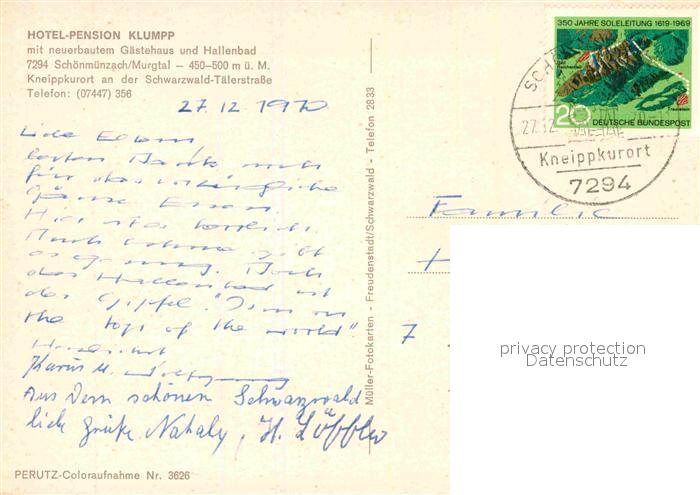 HOTEL-PENSION KLUMPP
mit neuerbautem Gästehaus und Hallenbad
7294 Schönmünzach/Murgtal — 450–500 m ü. M.
Kneippkurort an der Schwarzwald-Tälerstraße
Telefon: (07447) 356
27.12 1970
Liebe Eltern
besten Dank noch
für das
Gänse Essen.
Hier ist es herrlich.
gibt
es genug. Doch
das Hallenbad ist
der Gipfel. "I'm on
the top of the world"
Herzlichst
Karin u. Wolfgang
Aus dem schönen Schwarzwald
lieb Grüße Nathaly, H. Löffler
PERUTZ-Coloraufnahme Nr. 3626
Müller-Fotokarten - Freudenstadt/Schwarzwald - Telefon 2833
350 JAHRE SOLELEITUNG 1619-1969
20
DEUTSCHE BUNDESPOST
SCH
27.12.
Kneippkurort
7294
Familie
H
7
privacy protection
Datenschutz